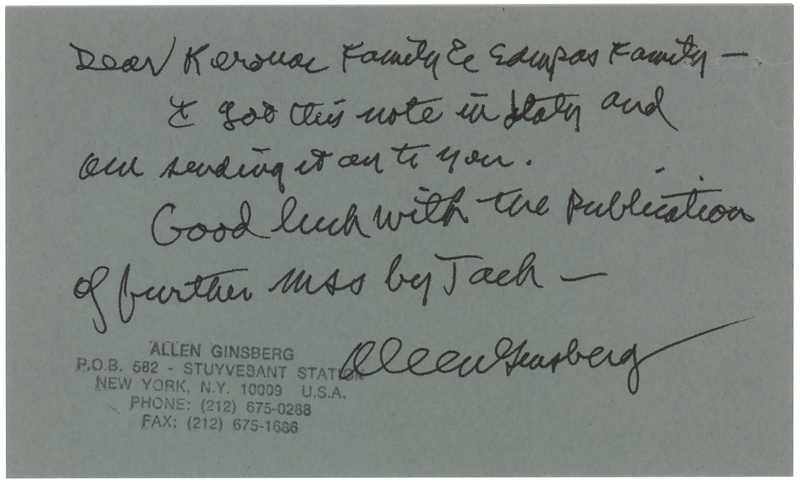 Dear Kerouac Family & Sampas Family —
I got this note in Italy and
am sending it on to you.
Good luck with the publication
of further mss by Jack —
Allen Ginsberg
ALLEN GINSBERG
P.O.B. 582 - STUYVESANT STATION
NEW YORK, N.Y. 10009 U.S.A.
PHONE: (212) 675-0288
FAX: (212) 675-1686